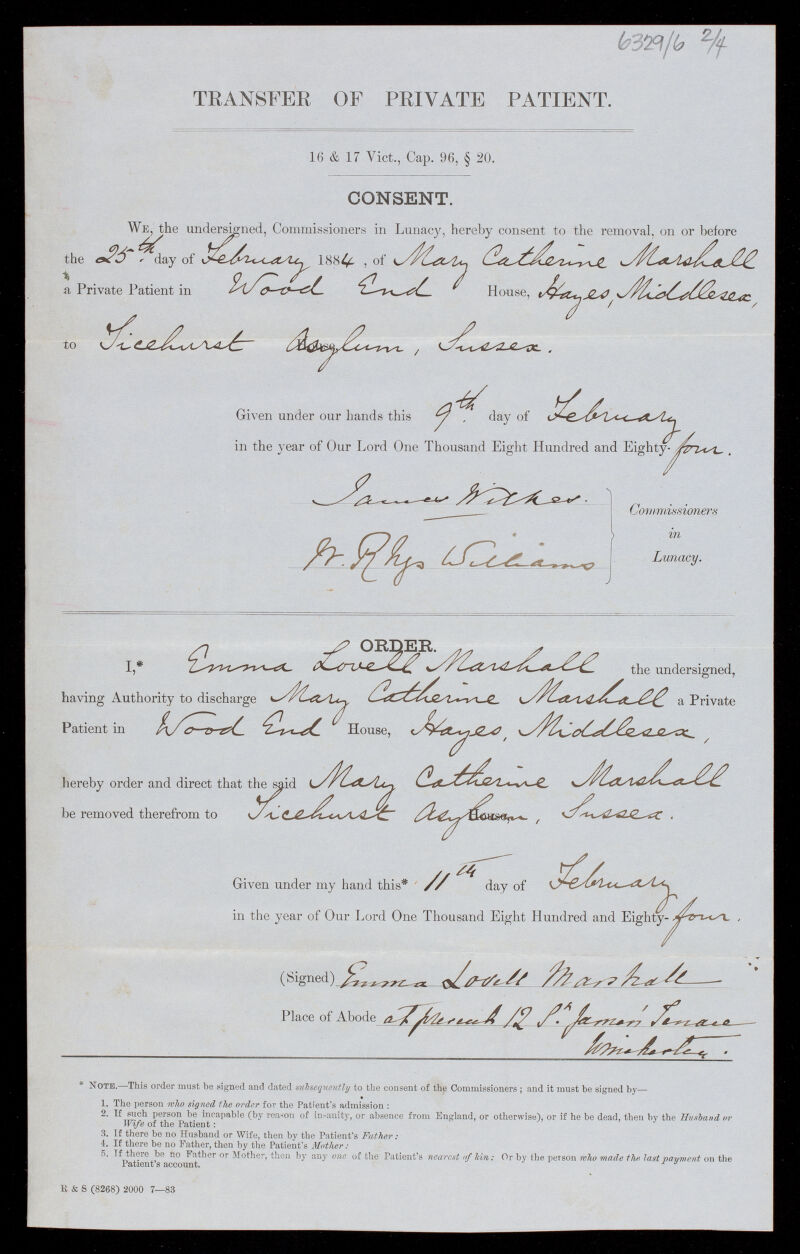 6329/6 2/4
TRANSFER OF PRIVATE PATIENT.
16 & 17 Vict., Cap. 96, § 20.
CONSENT.
WE, the undersigned, Commissioners in Lunacy, hereby consent to the removal, on or before
the 25th. day of February 1884, of Mary Catherine Marshall
a Private Patient in Wood End House, Hayes, Middlesex,
to Ticehurst Asylum, Sussex.
Given under our hands this 9th. day of February
in the year of Our Lord One Thousand Eight Hundred and Eighty-four.
James Wilkes.
W. Rhys Williams
Commissioners
in
Lunacy.
ORDER.
I,* Emma Lovell Marshall the undersigned,
having Authority to discharge Mary Catherine Marshall a Private
Patient in Wood End House, Hayes, Middlesex,
hereby order and direct that the said Mary Catherine Marshall
be removed therefrom to Ticehurst Asylum House, Sussex.
Given under my hand this* 11th day of February
in the year of Our Lord One Thousand Eight Hundred and Eighty-four.
(Signed) Emma Lovell Marshall
Place of Abode at present 12 St. James' Terrace
Winchester.
* NOTE.—This order must be signed and dated subsequently to the consent of the Commissioners; and it must be signed by—
1. The person who signed the order for the Patient's admission:
2. If such person be incapable (by reason of insanity, or absence from England, or otherwise), or if he be dead, then by the Husband or
Wife of the Patient:
3. If there be no Husband or Wife, then by the Patient's Father:
4. If there be no Father, then by the Patient's Mother:
5. If there be no Father or Mother, then by any one of the Patient's nearest of kin: Or by the person who made the last payment on the
Patient's account.
R & S (8268) 2000 7—83